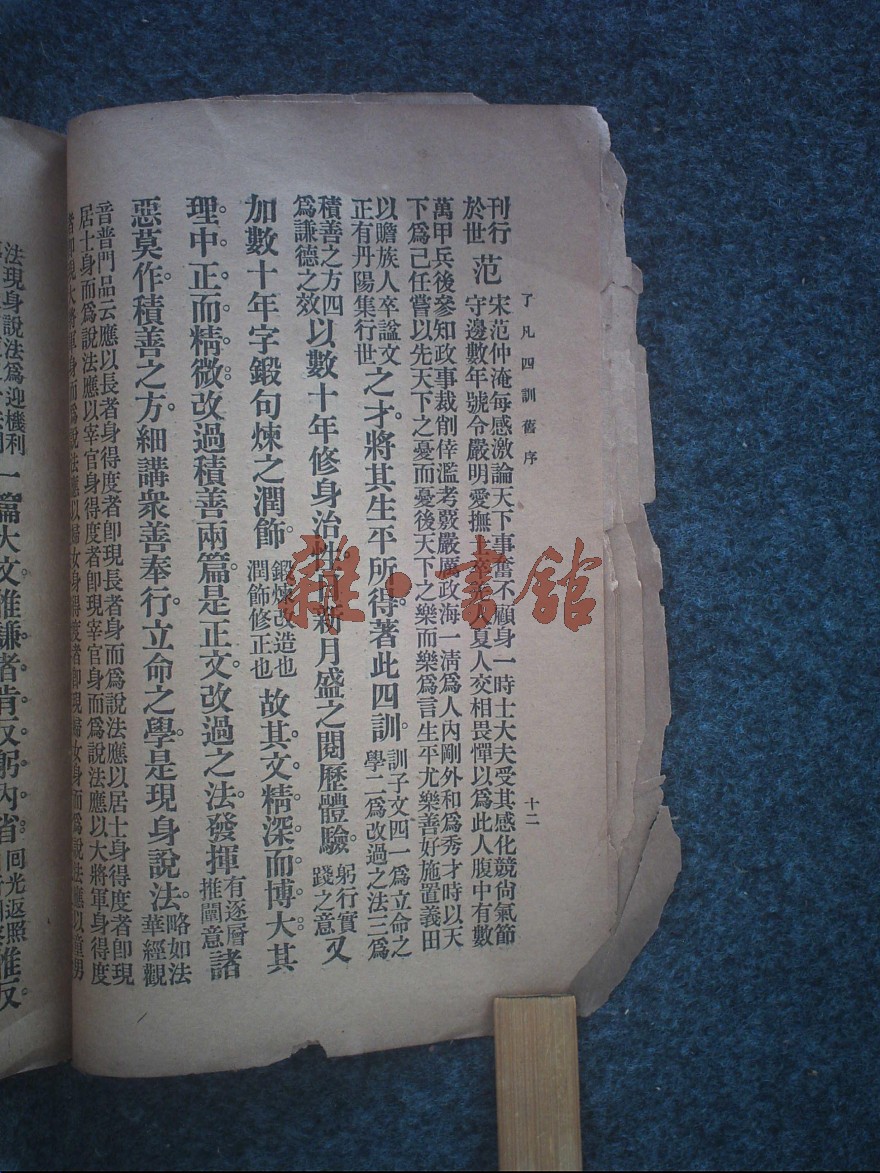 了凡四訓舊序
十二
刊行
於世
范
宋范仲淹每感激論天下事奮不顧身一時士大夫受其感化競尙氣節
守邊數年號令嚴明愛撫士卒夏人交相畏憚以為此人腹中有數
萬甲兵後參知政事裁削倖濫考覈嚴厲政海一淸為人內剛外和為秀才時以天
下爲己任嘗以先天下之憂而憂後天下之樂而樂爲言生平尤樂善好施置義田
以贍族人卒諡文
正有丹陽集行世
之才將其生平所得著此四訓。
訓子文四一爲立命之
學二爲改過之法三爲
積善之方四
爲謙德之效
以數十年修身治性日新月盛之閱歷體驗。
躬行實
踐之意
又
加數十年字鍛句煉之潤飾。
鍛煉改造也
潤飾修正也
故其文精深而博大其
理中正而精微改過積善兩篇是正文改過之法發揮
有逐層
推闡意
諸
惡莫作。積善之方細講衆善奉行立命之學是現身說法。
略如法
華經觀
音普門品云應以長者身得度者卽現長者身而爲說法應以居士身得度者卽現
居士身而爲說法應以宰官身得度者卽現宰官身而爲說法應以大將軍身得度
者卽現大將軍身而爲說法應以婦女身得度者卽現婦女身而爲說法應以童男
法現身說法爲迎機利
一篇大文惟謙者肯反躬內省。
同光返照
惟反
雜·書館